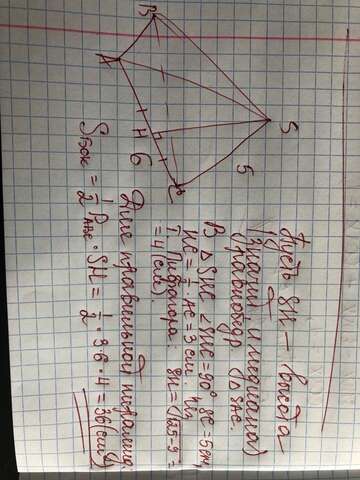 B
A
S
H
C
6
5
Пусть SH – высота
(значит и медиана)
равнобедр. △ SAC.
В △ SHC ∠SHC=90° SC=5см,
HC = 1/2 AC = 3 см. По
т. Пифагора: SH = √25-9 =
= 4 (см).
Для правильной пирамиды
Sбок = 1/2 P_ABC · SH = 1/2 · 3·6 · 4 = 36 (см²)